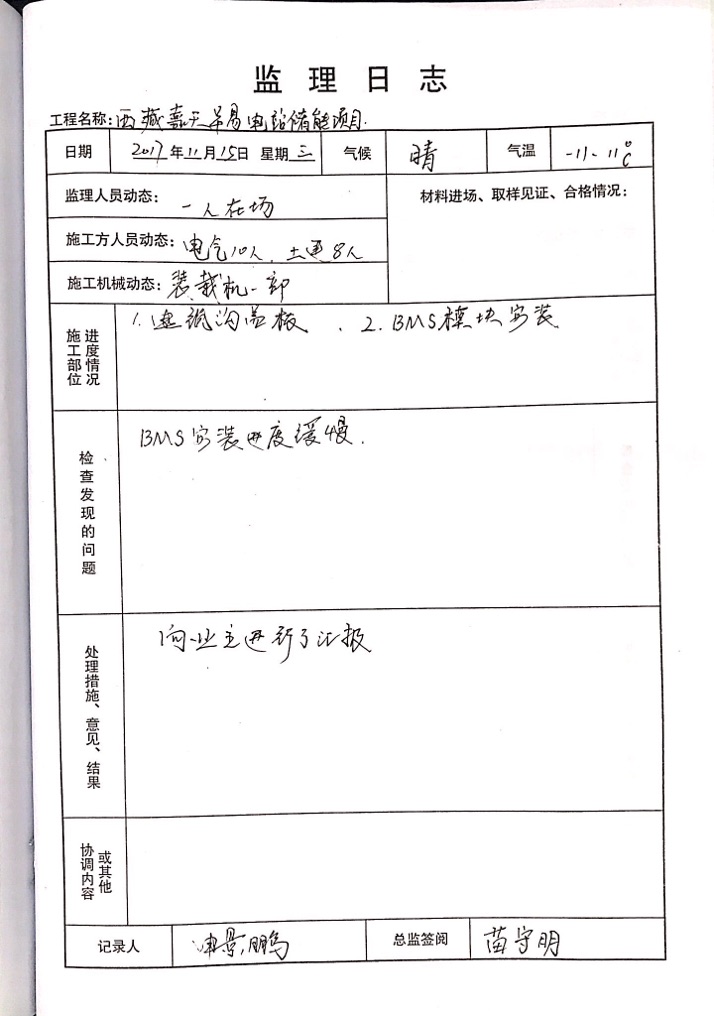 监理日志
工程名称:西藏嘉天羊易电站储能项目.
日期 2017年11月15日 星期三 气候 晴 气温 -11-11℃
监理人员动态: 一人在场
材料进场、取样见证、合格情况:
施工方人员动态: 电气10人、土建8人
施工机械动态: 装载机一部
进度情况
施工部位
1. 盖板 、2. BMS模块安装
检查发现的问题
BMS安装进度缓慢.
处理措施、意见、结果
向业主进行了汇报
或其他
协调内容
记录人 景鹏 总监签阅 苗守明